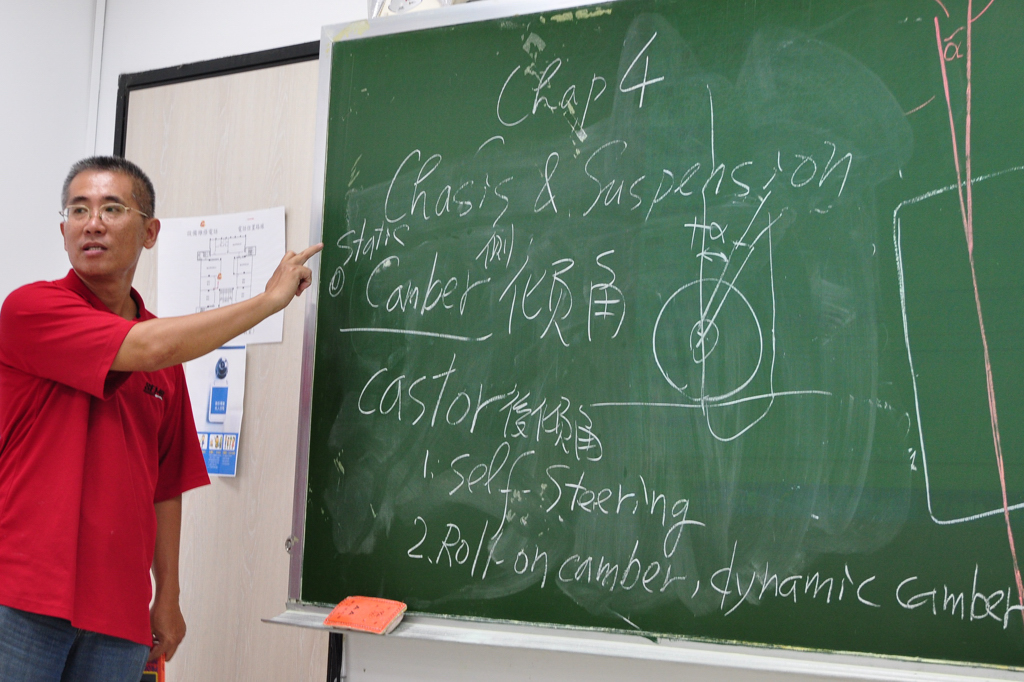 Chap 4
Chasis & Suspension
static
① Camber 側傾角
+α
castor 後傾角
1. self-steering
2. Roll-on camber, dynamic camber
α